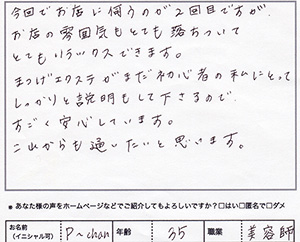 今回でお店に伺うのが2回目ですが、
お店の雰囲気もとても落ちついて
とてもリラックスできます。
まつげエクステがまだ初心者の私にとって
しっかりと説明もして下さるので、
すごく安心しています。
これからも通いたいと思います。
＊あなた様の声をホームページなどでご紹介してもよろしいですか？□はい□匿名で□ダメ
お名前（イニシャル可） P〜chan 年齢 35 職業 美容師